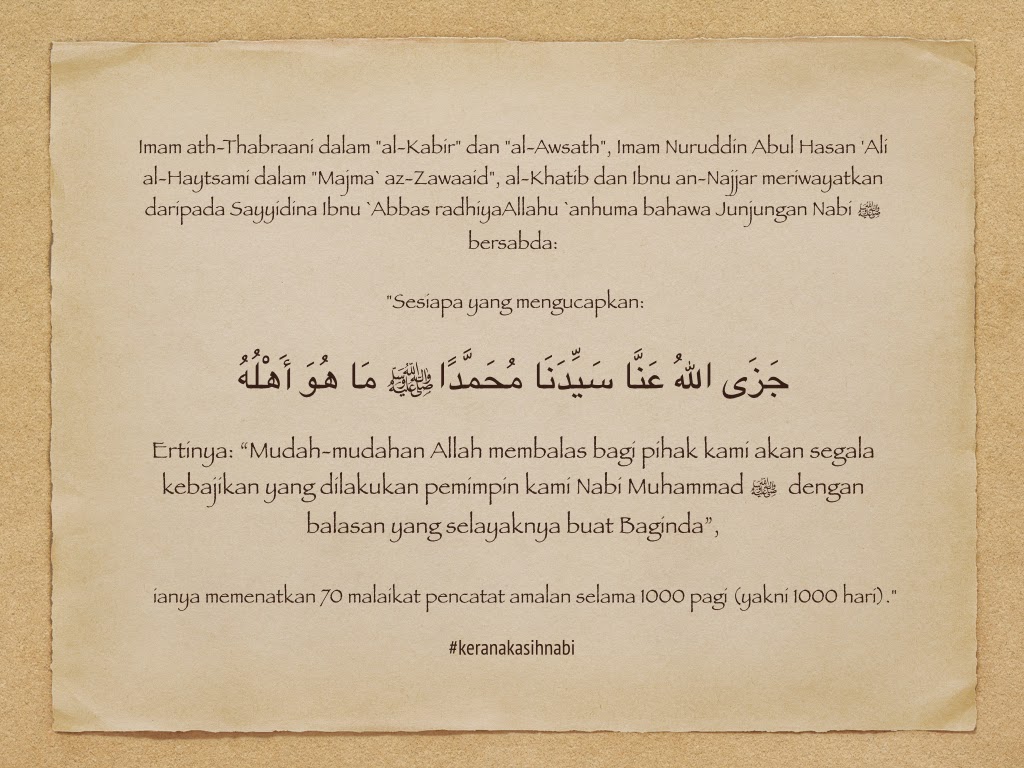 Imam ath-Thabraani dalam "al-Kabir" dan "al-Awsath", Imam Nuruddin Abul Hasan 'Ali
al-Haytsami dalam "Majma` az-Zawaaid", al-Khatib dan Ibnu an-Najjar meriwayatkan
daripada Sayyidina Ibnu `Abbas radhiyaAllahu `anhuma bahawa Junjungan Nabi ﷺ
bersabda:
"Sesiapa yang mengucapkan:
جَزَى اللهُ عَنَّا سَيِّدَنَا مُحَمَّدًا ﷺ مَا هُوَ أَهْلُهُ
Ertinya: “Mudah-mudahan Allah membalas bagi pihak kami akan segala
kebajikan yang dilakukan pemimpin kami Nabi Muhammad ﷺ dengan
balasan yang selayaknya buat Baginda”,
ianya memenatkan 70 malaikat pencatat amalan selama 1000 pagi (yakni 1000 hari)."
#keranakasihnabi